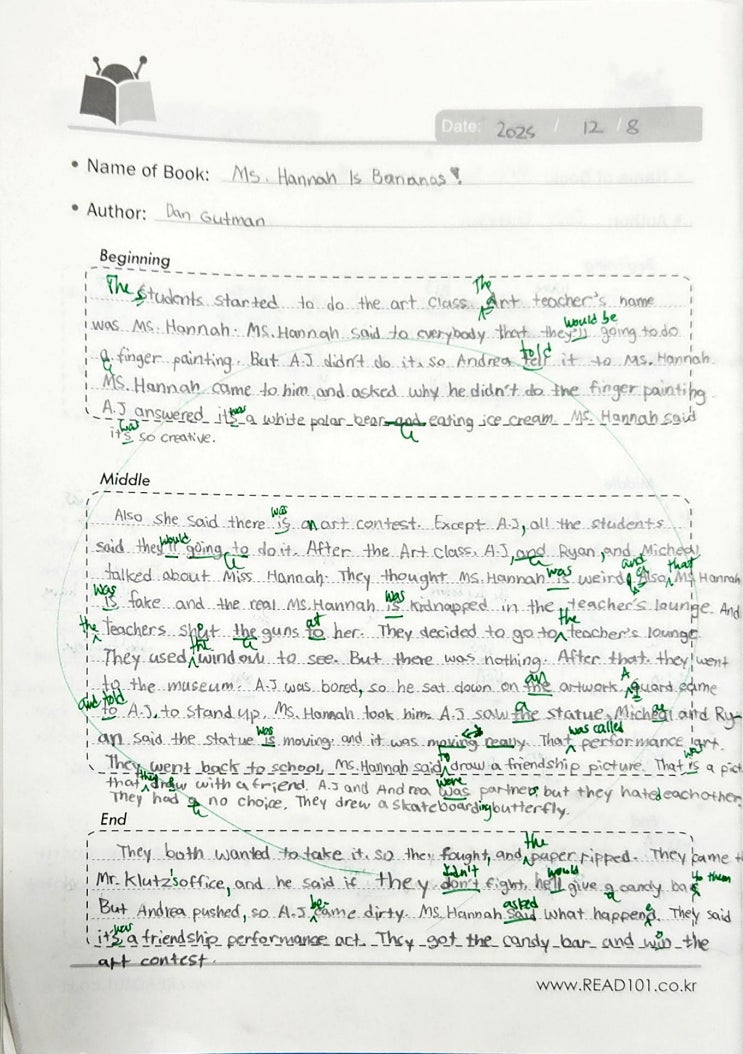 Date: 2025 / 12 / 8
• Name of Book: Ms. Hannah Is Bananas!
• Author: Dan Gutman
Beginning
The The
Students started to do the art class. Art teacher's name
would be
was Ms. Hannah. Ms. Hannah said to everybody that they'll going to do
told
a finger painting. But A.J didn't do it, so Andrea tell it to Ms. Hannah.
Ms. Hannah came to him and asked why he didn't do the finger painting.
was
A.J answered it's a white polar bear and eating ice cream. Ms. Hannah said
was
it's so creative.
Middle
was
Also she said there is an art contest. Except A.J, all the students
would
said they'll going to do it. After the Art class. A.J, and Ryan, and Micheal
was and that
talked about Miss Hannah. They thought Ms. Hannah is weird. Also Ms. Hannah
was was
is fake and the real Ms. Hannah is kidnapped in the teacher's lounge. And
the at the
teachers shot the guns to her. They decided to go to teacher's lounge.
the
They used window to see. But there was nothing. After that they went
an A
to the museum. A.J was bored, so he sat down on the artwork. guard came
and told a
to A.J, to stand up. Ms. Hannah took him. A.J saw the statue. Micheal and Ry-
was was called
an said the statue is moving. and it was moving really. That performance art.
to was
They went back to school, Ms. Hannah said draw a friendship picture. That is a pict
they were
that drew with a friend. A.J and Andrea was partner, but they hated eachother.
They had a no choice. They drew a skateboarding butterfly.
End
the
They both wanted to take it. so they fought, and paper ripped. They came t
didn't would to them
Mr. Klutz's office, and he said if they don't fight, he'll give a candy bar
be asked
But Andrea pushed, so A.J came dirty. Ms. Hannah said what happened. They said
was
it's a friendship performance art. They got the candy bar and win the
art contest.
www.READ101.co.kr